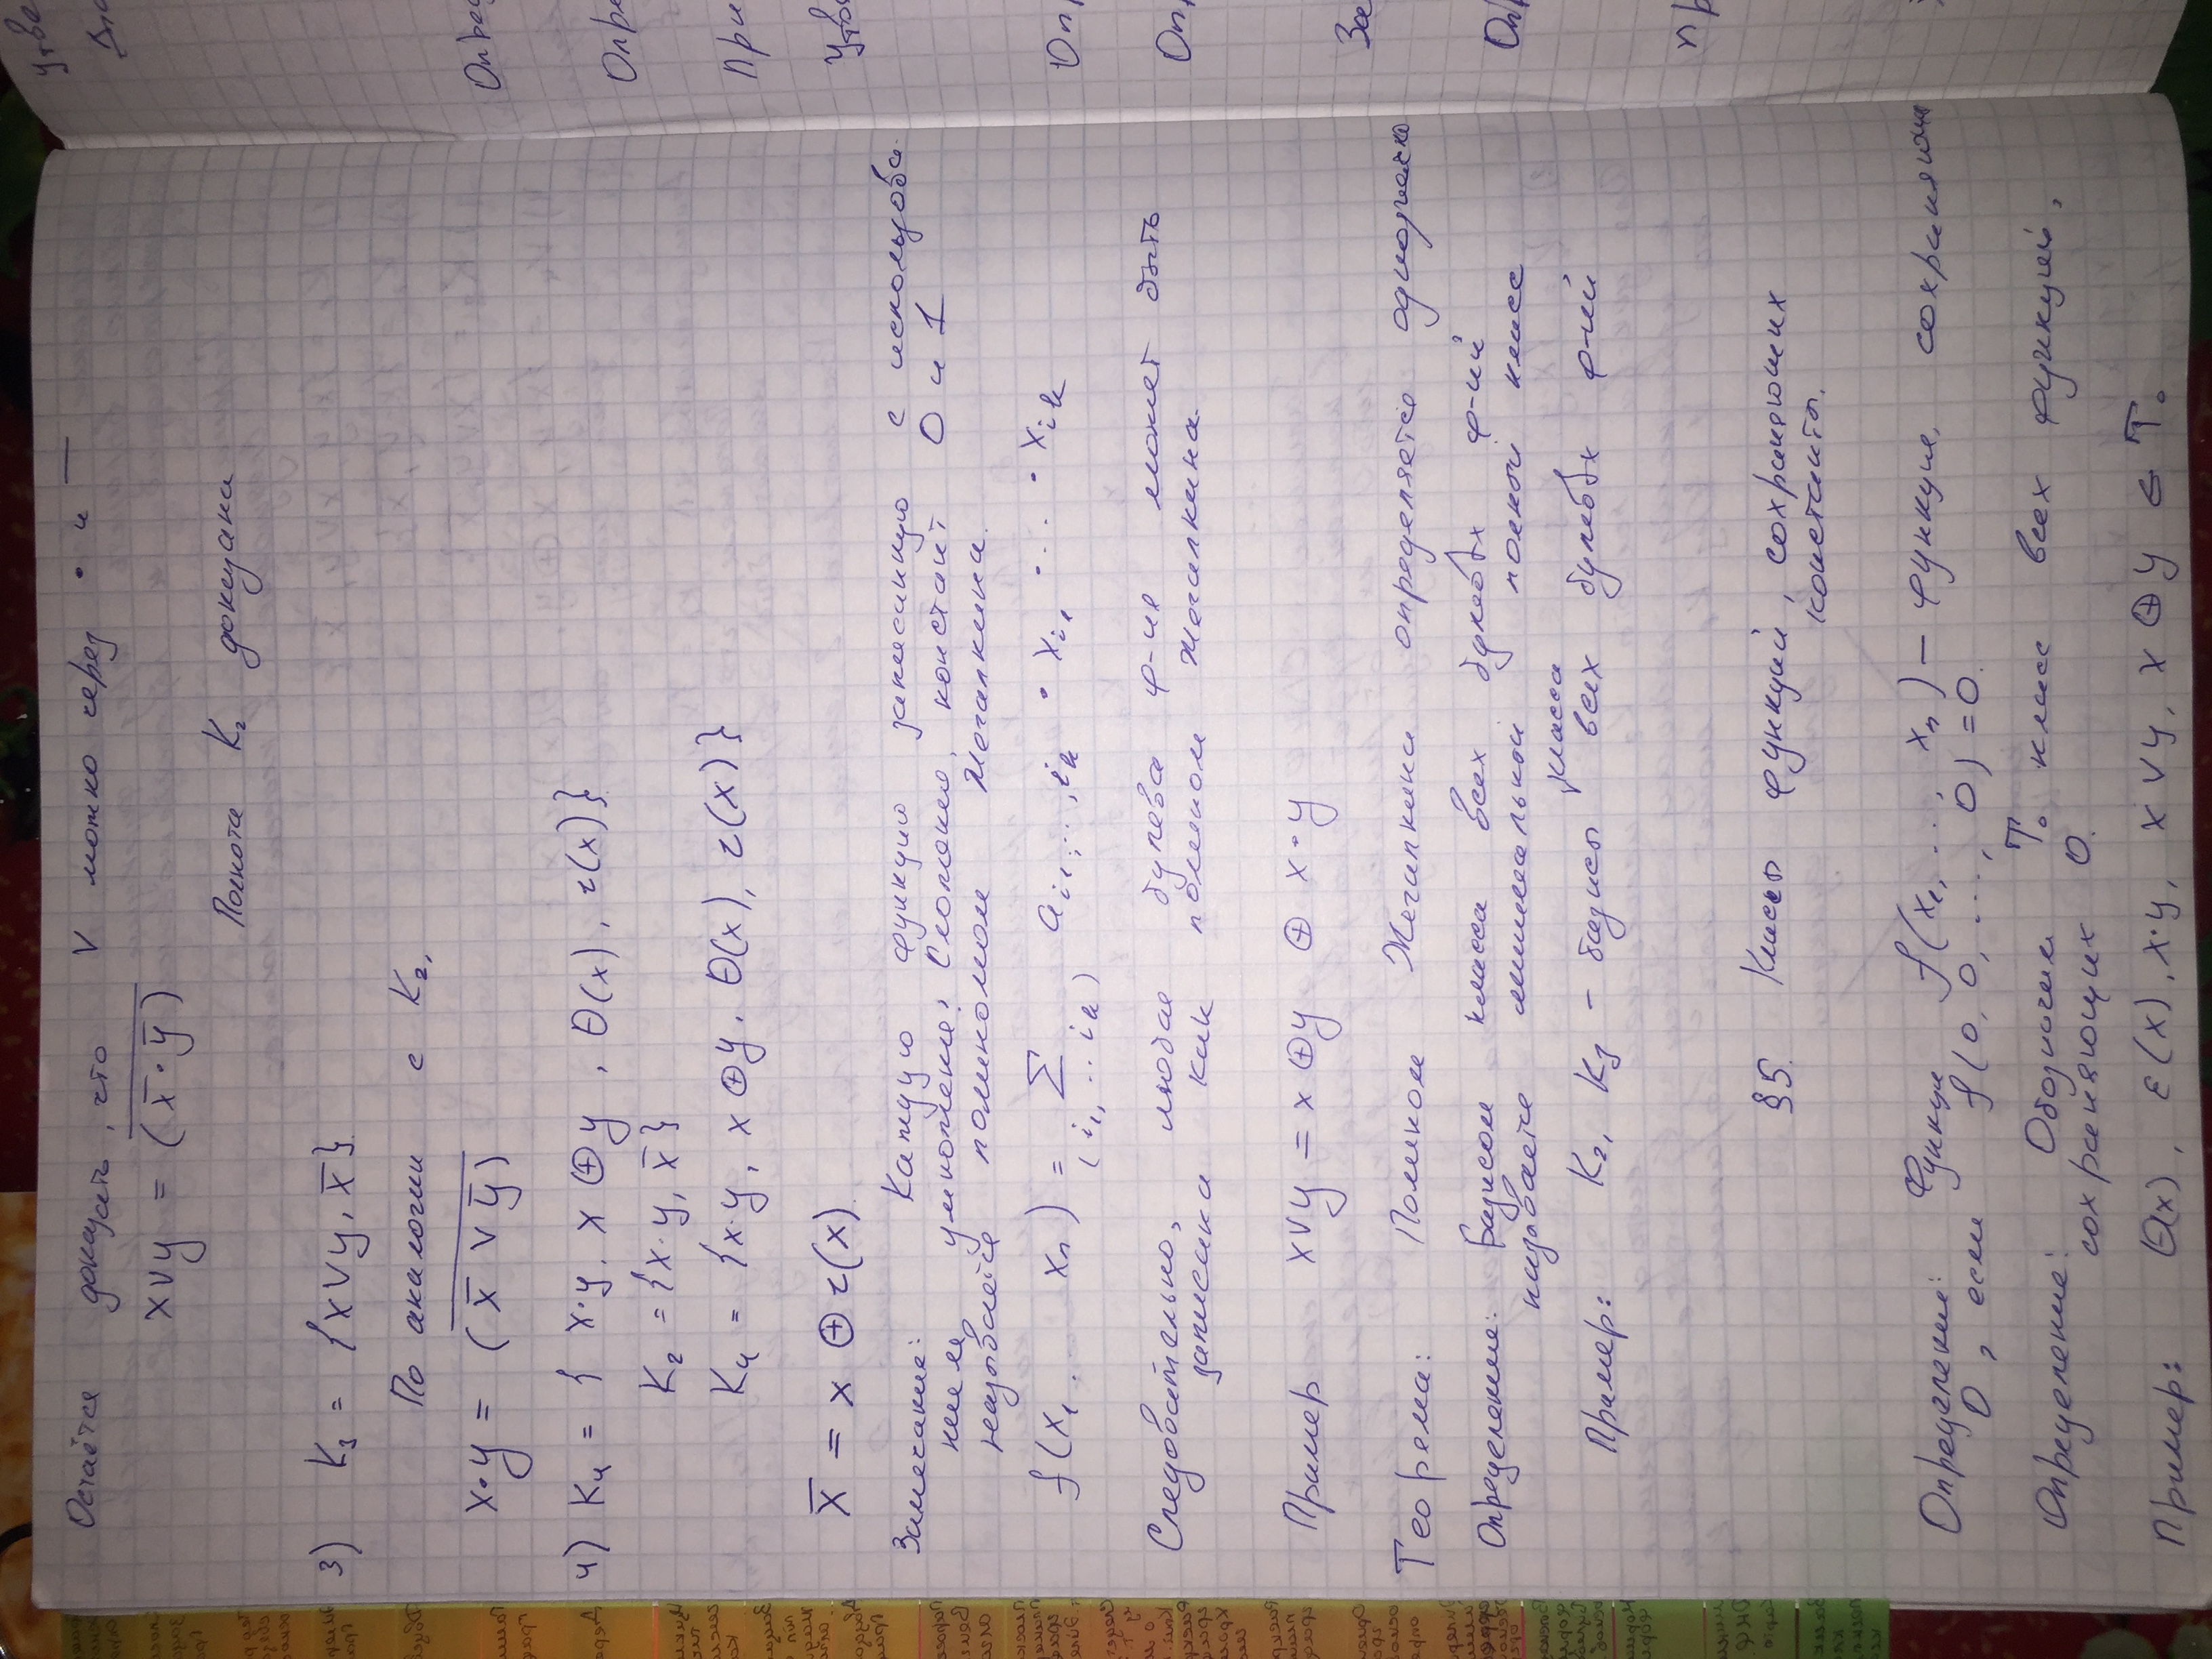 Остаётся доказать, что ∨ можно через · и ‾
x∨y = \overline{(x̅·y̅)}
Полнота K₂ доказана
3) K₃ = {x∨y, x̅}.
По аналогии с K₂,
x·y = \overline{(x̅ ∨ y̅)}
4) K₄ = { x·y, x ⊕ y, θ(x), τ(x)}
K₂ = {x·y, x̅}
K₄ = {x·y, x⊕y, θ(x), τ(x)}
x̅ = x ⊕ τ(x).
Замечание: Каждую функцию записанную с использова-
нием умножения, сложения, констант 0 и 1
называется полиномом Жегалкина.
f(x₁, ... xₙ) = Σ a_{i₁,...,i_k} · x_{i₁} · ... · x_{i_k}
(i₁, ... i_k)
Следовательно, любая булева ф-ия может быть
записана как полином Жегалкина.
Пример x∨y = x⊕y ⊕ x·y
Теорема: Полином Жегалкина определяется однозначно
Определение: Базисом класса всех булевых ф-ий
называется минимальной полной класс
класса
Пример: K₂, K₃ – базисы всех булевых ф-ий
§5. Классы функций, сохраняющих
константы.
Определение: Функция f(x₁, ..., xₙ) – функция, сохраняющая
0, если f(0, 0, ..., 0) = 0.
Определение: Обозначим T₀ класс всех функций,
сохраняющих 0.
Пример: θ(x), ε(x), x·y, x∨y, x⊕y ∈ T₀
Опре
Опре
При
Оп
За
Оп
Пр